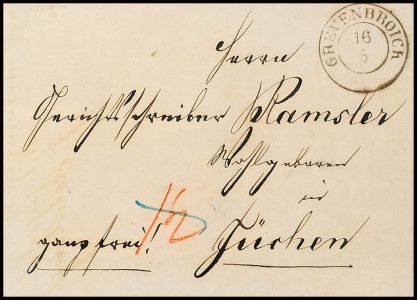 Herrn
GREVENBROICH
16
5
Gerichtsschreiber Ramsler
Wohlgeboren
in
ganz frei! 1/2 Jüchen